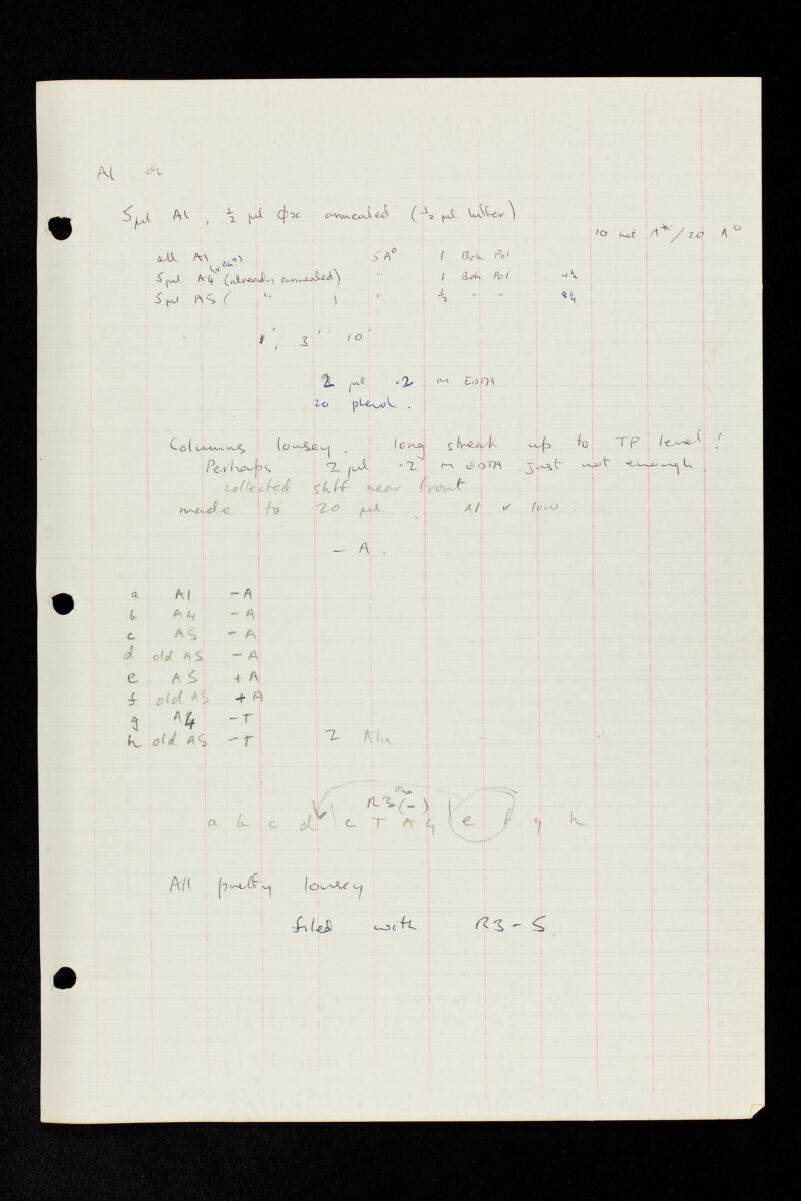 A1
5 µl A1, ½ µl φx annealed (½ µl buffer)
10 hot A*/20 A°
all A1 5 A° 1 Boh Pol
5 µl A4 (already annealed) " 1 Boh Pol
5 µl A5 ( " ) " ½ " "
1', 3' 10'
2 µl .2 M EDTA
20 phenol.
Columns lousey. long streak up to TP level!
Perhaps 2 µl .2 M EDTA just not enough.
collected stuff near front
made to 20 µl. A1 v low.
– A.
a A1 – A
b A4 – A
c A5 – A
d old A5 – A
e A5 + A
f old A5 + A
g A4 – T
h old A5 – T 2 Alu
R3 (–)
a b c d | C T A G | e f g h
All pretty lousey
filed with R3-5.